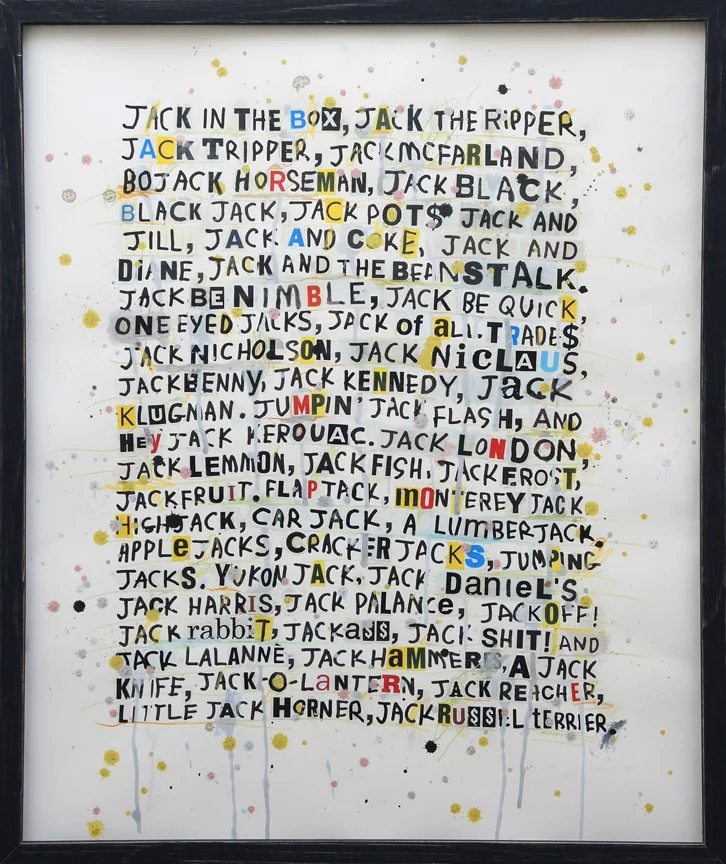 JACK IN THE BOX, JACK THE RiPPER,
JACK TRIPPER, JACK MCFARLAND,
BOJACK HORSEMAN, JACK BLACK,
BLACK JACK, JACK POT$ JACK AND
JILL, JACK AND COKE, JACK AND
DiANE, JACK AND THE BEANSTALK.
JACK BE NIMBLE, JACK BE QUICK,
ONE EYED JACKS, JACK of all TRADE$
JACK NICHOLSON, JACK NicLAUS,
JACK BENNY, JACK KENNEDY, Jack
KLUGMAN. JUMPIN' JACK FLASH, AND
HEy JACK KEROUAC. JACK LONDON,
JACK LEMMON, JACK FISH, JACK FROST,
JACKFRUIT. FLAPJACK, mONTEREY JACK
HIGHJACK, CAR JACK, A LUMBERJACK,
APPLe JACKS, CRACKER JACKS, JUMPING
JACKS. YUKON JACK, JACK DanieL'S
JACK HARRIS, JACK PALANce, JACKOFF!
JACK rabbiT, JACKaSS, JACK SHIT! AND
JACK LALANNE, JACKHaMMERS, A JACK
KNIFE, JACK-O-LaNTERN, JACK REACHER,
LITTLE JACK HORNER, JACK RUSSELL tERRIER.